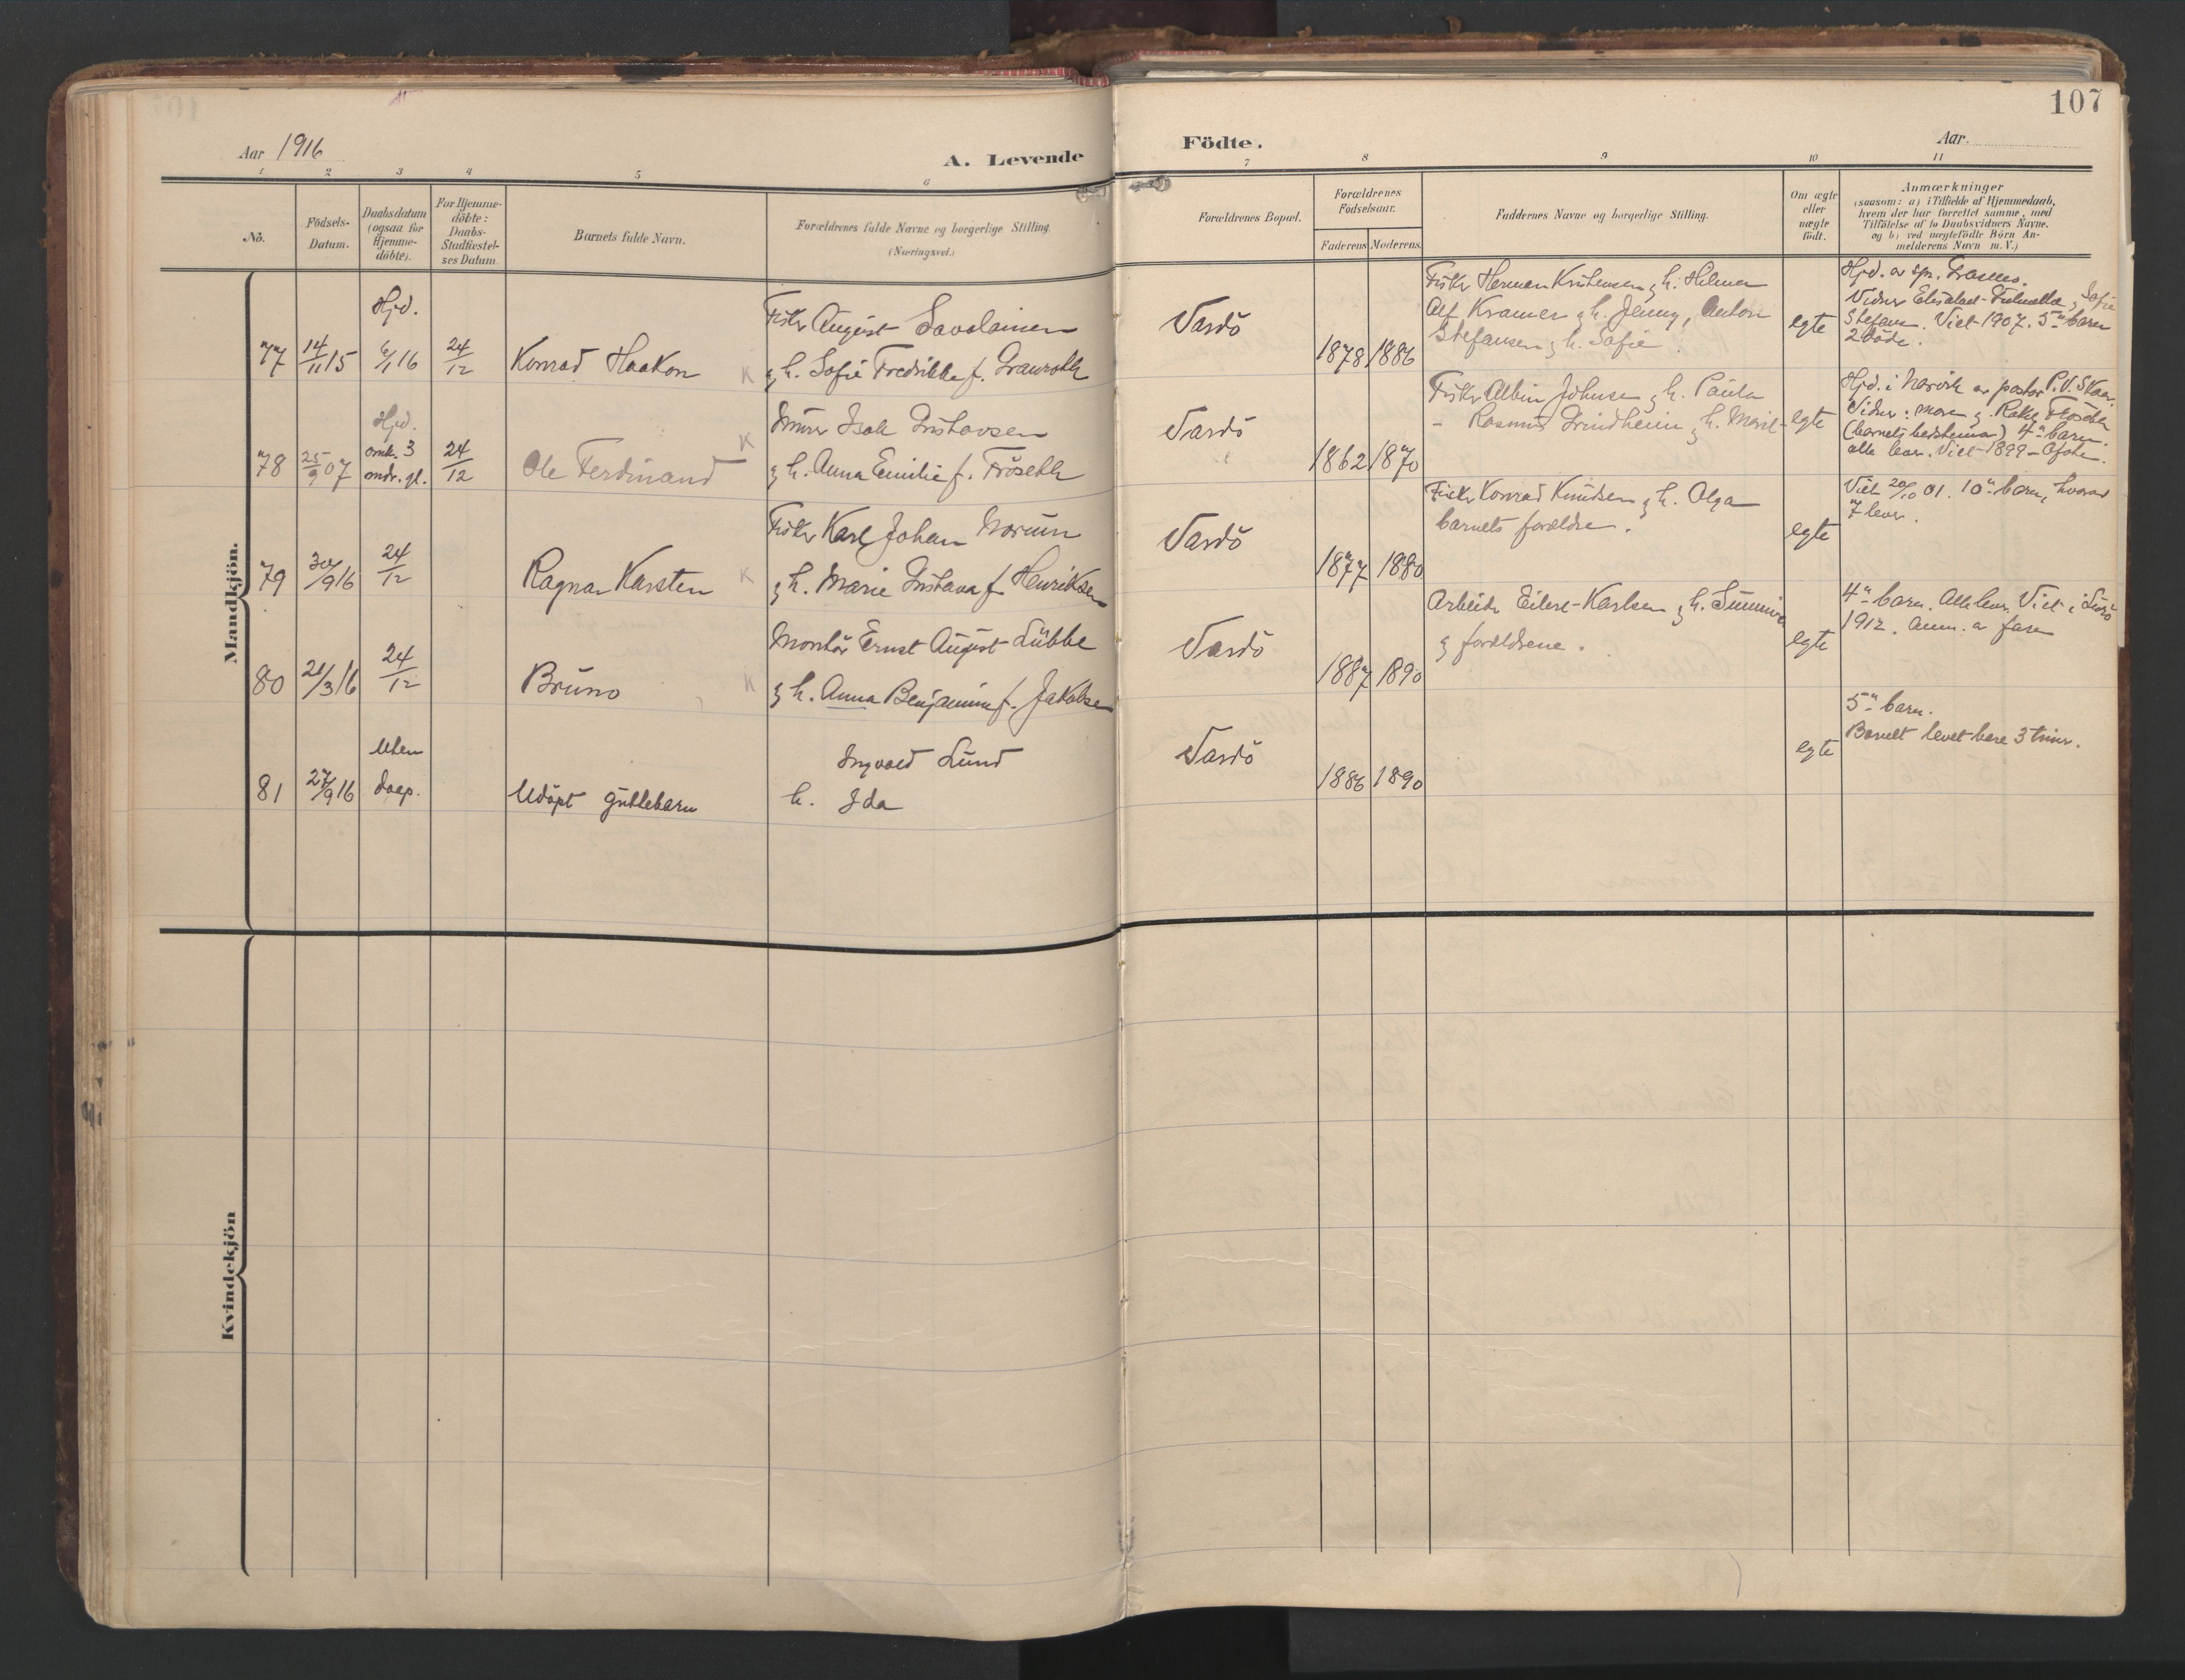 107
Aar 1916
A. Levende
Födte.
Aar.
1 2 3 4 5 6 7 8 9 10 11
No.
Födsels-
Datum.
Daabsdatum
(ogsaa for
Hjemme-
döbte).
For Hjemme-
döbte:
Daabs-
Stadfæstel-
ses Datum.
Barnets fulde Navn.
Forældrenes fulde Navne og borgerlige Stilling
(Næringsvei.)
Forældrenes Bopæl.
Forældrenes
Födselsaar.
Faderens Moderens
Faddernes Navne og borgerlige Stilling.
Om ægte
eller
uægte
födt.
Anmærkninger
(saasom: a) i Tilfælde af Hjemmedaab,
hvem der har forrettet samme, med
Tilföielse af to Daabsvidners Navne.
og b) ved uægtefödte Börn An-
melderens Navn m. V.)
Mandkjön.
77
14/11 15
Hjd.
6/1 16
24/12
Konrad Haakon
K
Fisker August Savolainen
& h. Sofie Fredrikke f. Granroth
Vardö
1878 1886
Fisker Herman Kristensen & h. Helmer
Alf Kramer & h. Jenny, Anton
Stefansen & h. Sofie.
egte
Hjd. av spr.
Vidner Elisabet & Sofie
Stefans. Viet 1907. 5te barn
2 döde.
78
25/9 07
Hjd.
omk. 3
mdr. gl.
24/12
Ole Ferdinand
K
Murer Isak Gustavsen
& h. Anna Emilie f. Fröseth
Vardö
1862 1870
Fisker Albin Johnsen & h. Paula
- Rasmus Grindheim & h. Marie
egte
Hjd. i Narvik av pastor P. V. Skaar.
Vidner: moren & Fröseth
(barnets bedstemor) 4de barn.
alle lever. Viet 1899
79
30/9 16
24/12
Ragnar Karsten
K
Fisker Karl Johan Norum
& h. Marie Gustava f. Henriksen
Vardö
1877 1880
Fisker Konrad Knudsen & h. Olga
barnets forældre.
egte
Viet 20/10 01. 10de barn, hvorav
7 lever.
80
21/3 16
24/12
Bruno
K
Montör Ernst August Lübbe
& h. Anna Benjamine f. Jakobsen
Vardö
1887 1890
Arbeider Eilert Karlsen & h. Sunniva
& forældrene.
egte
4de barn. Alle lever. Viet i
1912. Anm. av faren
81
27/9 16
Uten
daap.
Udöpt guttebarn
Ingvald Lund
h. Ida
Vardö
1886 1890
egte
5te barn.
Barnet levet bare 3 timer.
Kvindekjön